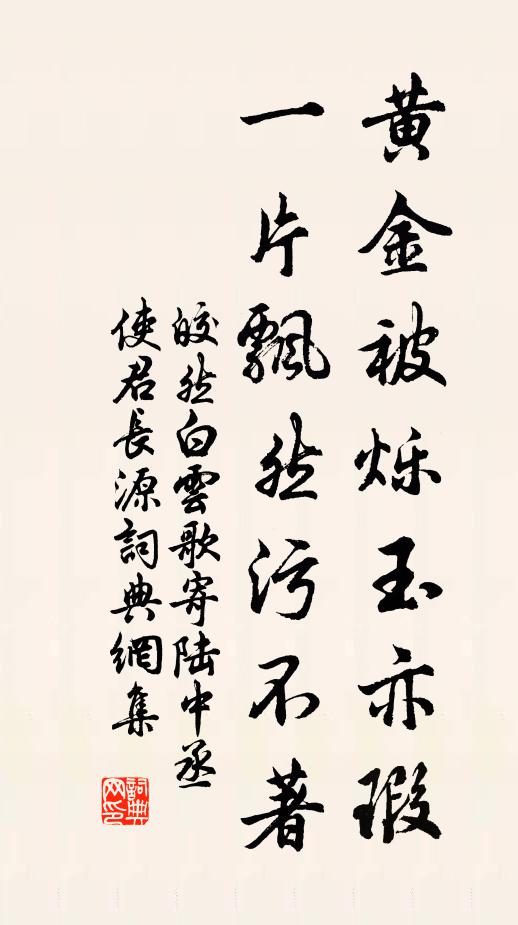 黄金被烁玉亦瑕
一片飘然污不著
皎然白雲歌寄陆中丞
使君長源詞典網集
詞典网印